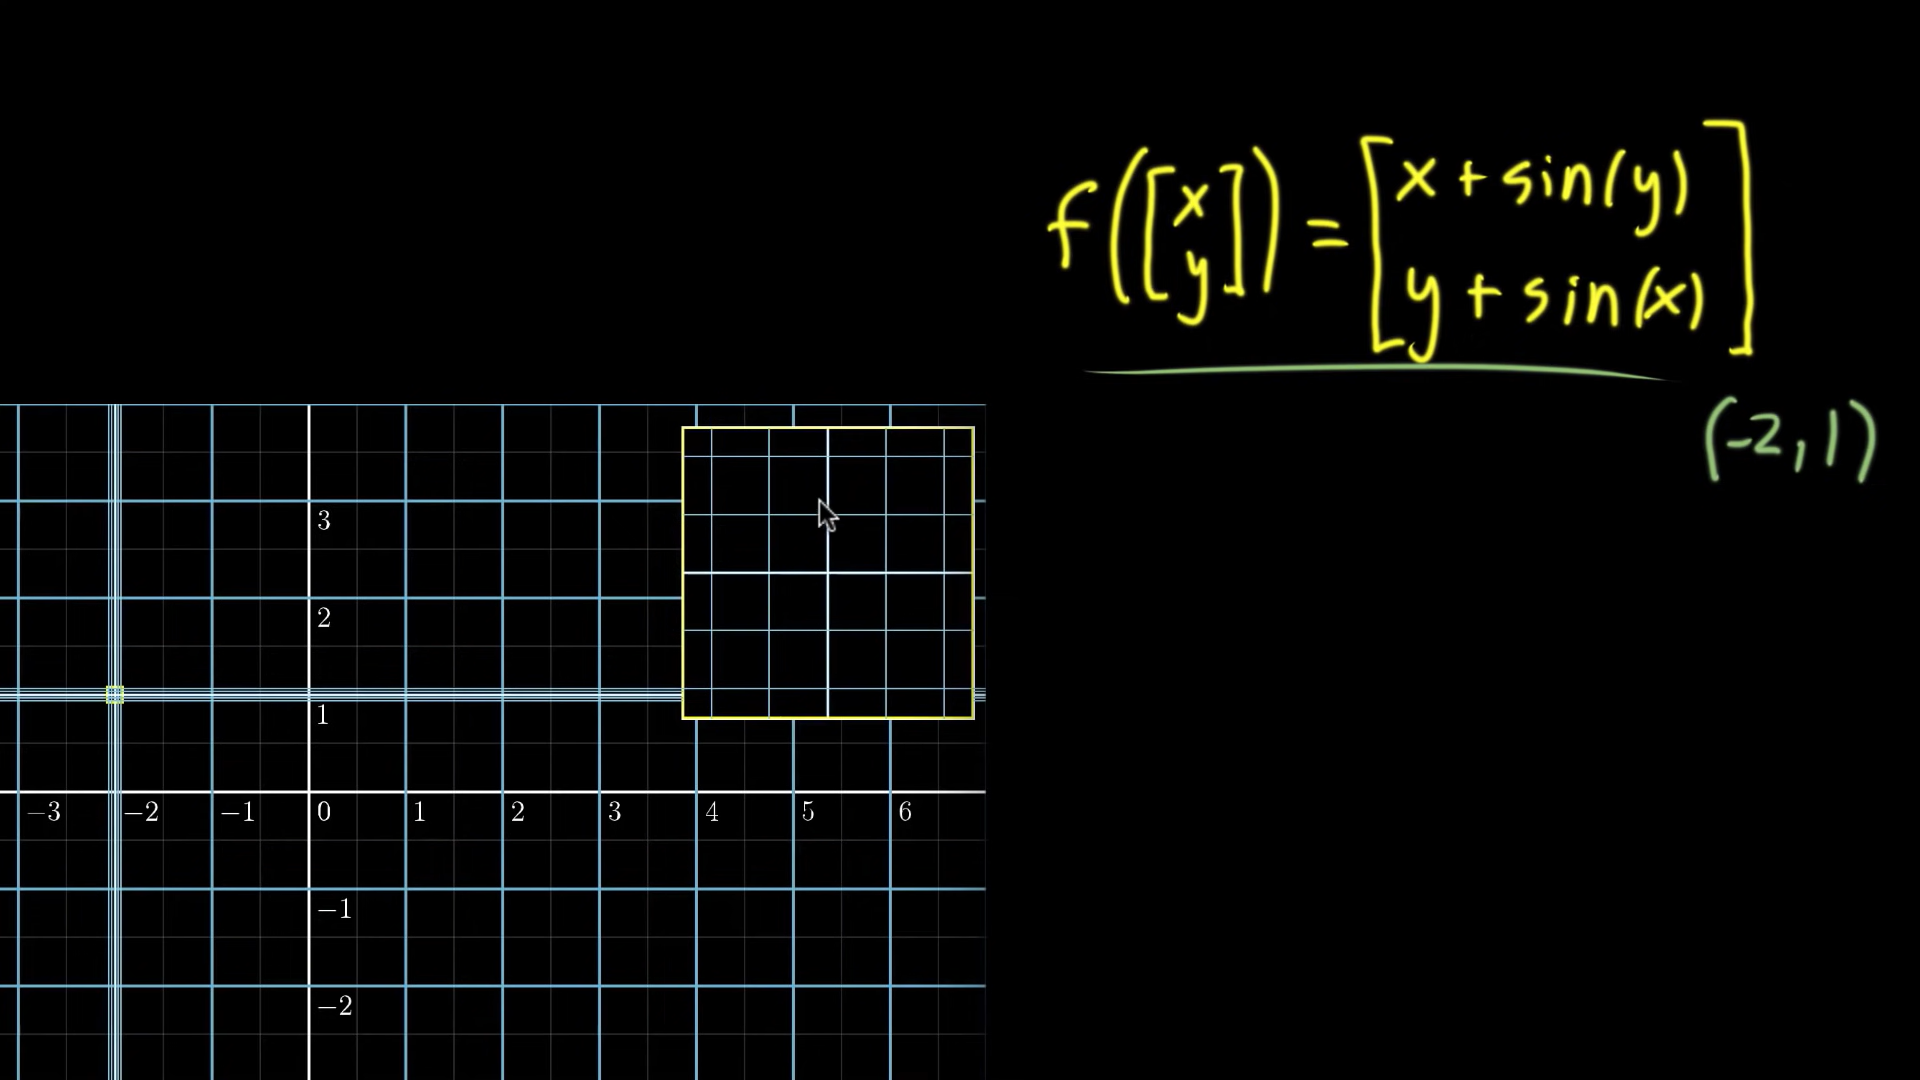 f([x y]) = [x + sin(y)
y + sin(x)]
(-2, 1)
3
2
1
−3 −2 −1 0 1 2 3 4 5 6
−1
−2